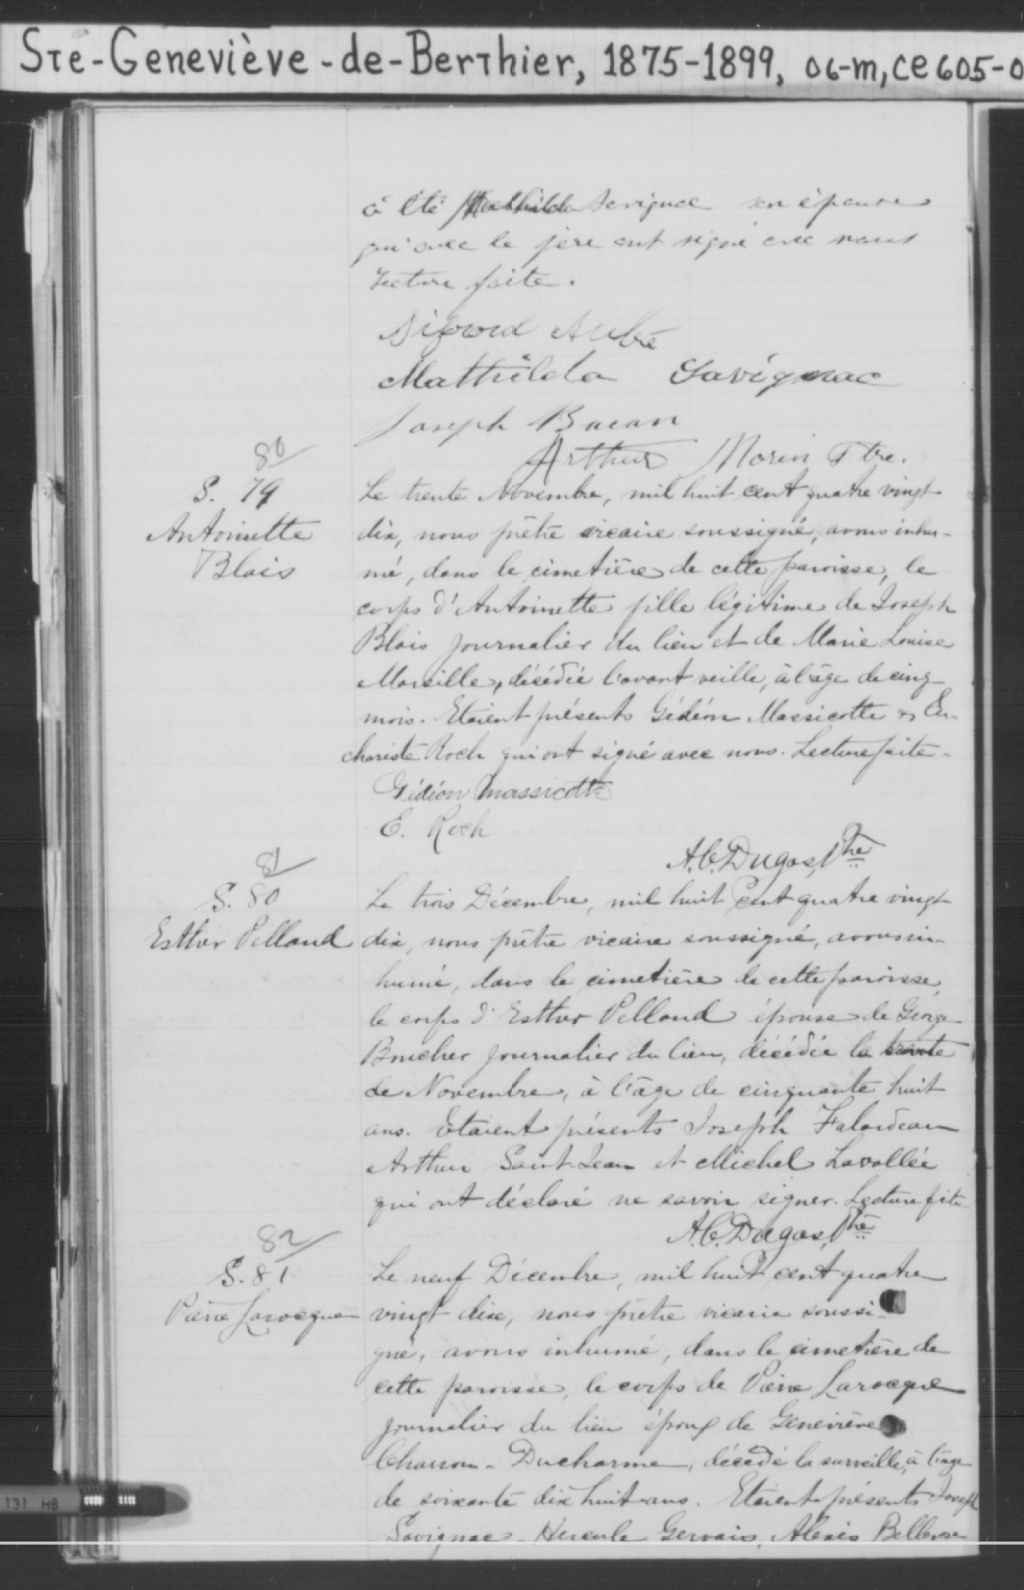 Ste-Geneviève-de-Berthier, 1875-1899, 06-m, ce605-0
a été Mathilda Savignac son épouse
qui avec le père ont signé avec nous
Lecture faite.
Aubé
Mathilda Savignac
Joseph
Arthur Morin Ptre.
80
S. 79
Antoinette
Blais
Le trente Novembre, mil huit cent quatre vingt
dix, nous prêtre vicaire soussigné, avons inhu-
mé, dans le cimetière de cette paroisse, le
corps d'Antoinette fille légitime de Joseph
Blais journalier du lieu et de Marie Louise
Marseille, décédée l'avant veille, à l'âge de cinq
mois. Etaient présents Gédéon Massicotte & Eu-
chariste Roch qui ont signé avec nous. Lecture faite-
Gédéon Massicotte
E. Roch
A.C. Dugas, Ptre
81
S. 80
Esther Pelland
Le trois Décembre, mil huit cent quatre vingt
dix, nous prêtre vicaire soussigné, avons in-
humé, dans le cimetière de cette paroisse,
le corps d'Esther Pelland épouse de George
Boucher journalier du lieu, décédée le trente
de Novembre, à l'âge de cinquante huit
ans. Etaient présents Joseph Falardeau
Arthur Saint-Jean et Michel Lavallée
qui ont déclaré ne savoir signer. Lecture fite
A.C. Dugas, Ptre
82
S. 81
Pierre Larocque
Le neuf Décembre, mil huit cent quatre
vingt dix, nous prêtre vicaire soussi-
gné, avons inhumé, dans le cimetière de
cette paroisse, le corps de Pierre Larocque
journalier du lieu époux de Geneviève
Charron-Ducharme, décédé la surveille, à l'âge
de soixante dix huit ans. Etaient présents Joseph
Savignac-Hercule Gervais, Alexis Bellerose
131 HB